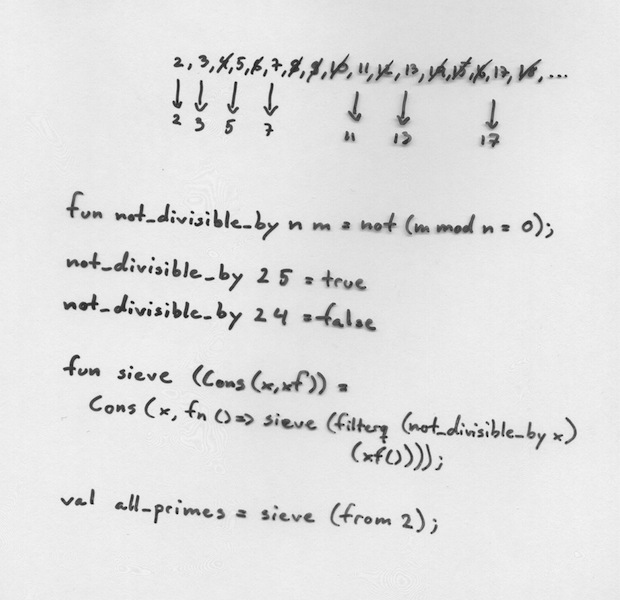 2, 3, 4, 5, 6, 7, 8, 9, 10, 11, 12, 13, 14, 15, 16, 17, 18, ...
2 3 5 7 11 13 17
fun not_divisible_by n m = not (m mod n = 0);
not_divisible_by 2 5 = true
not_divisible_by 2 4 = false
fun sieve (Cons(x,xf)) =
Cons (x, fn () => sieve (filterq (not_divisible_by x)
(xf())));
val all_primes = sieve (from 2);